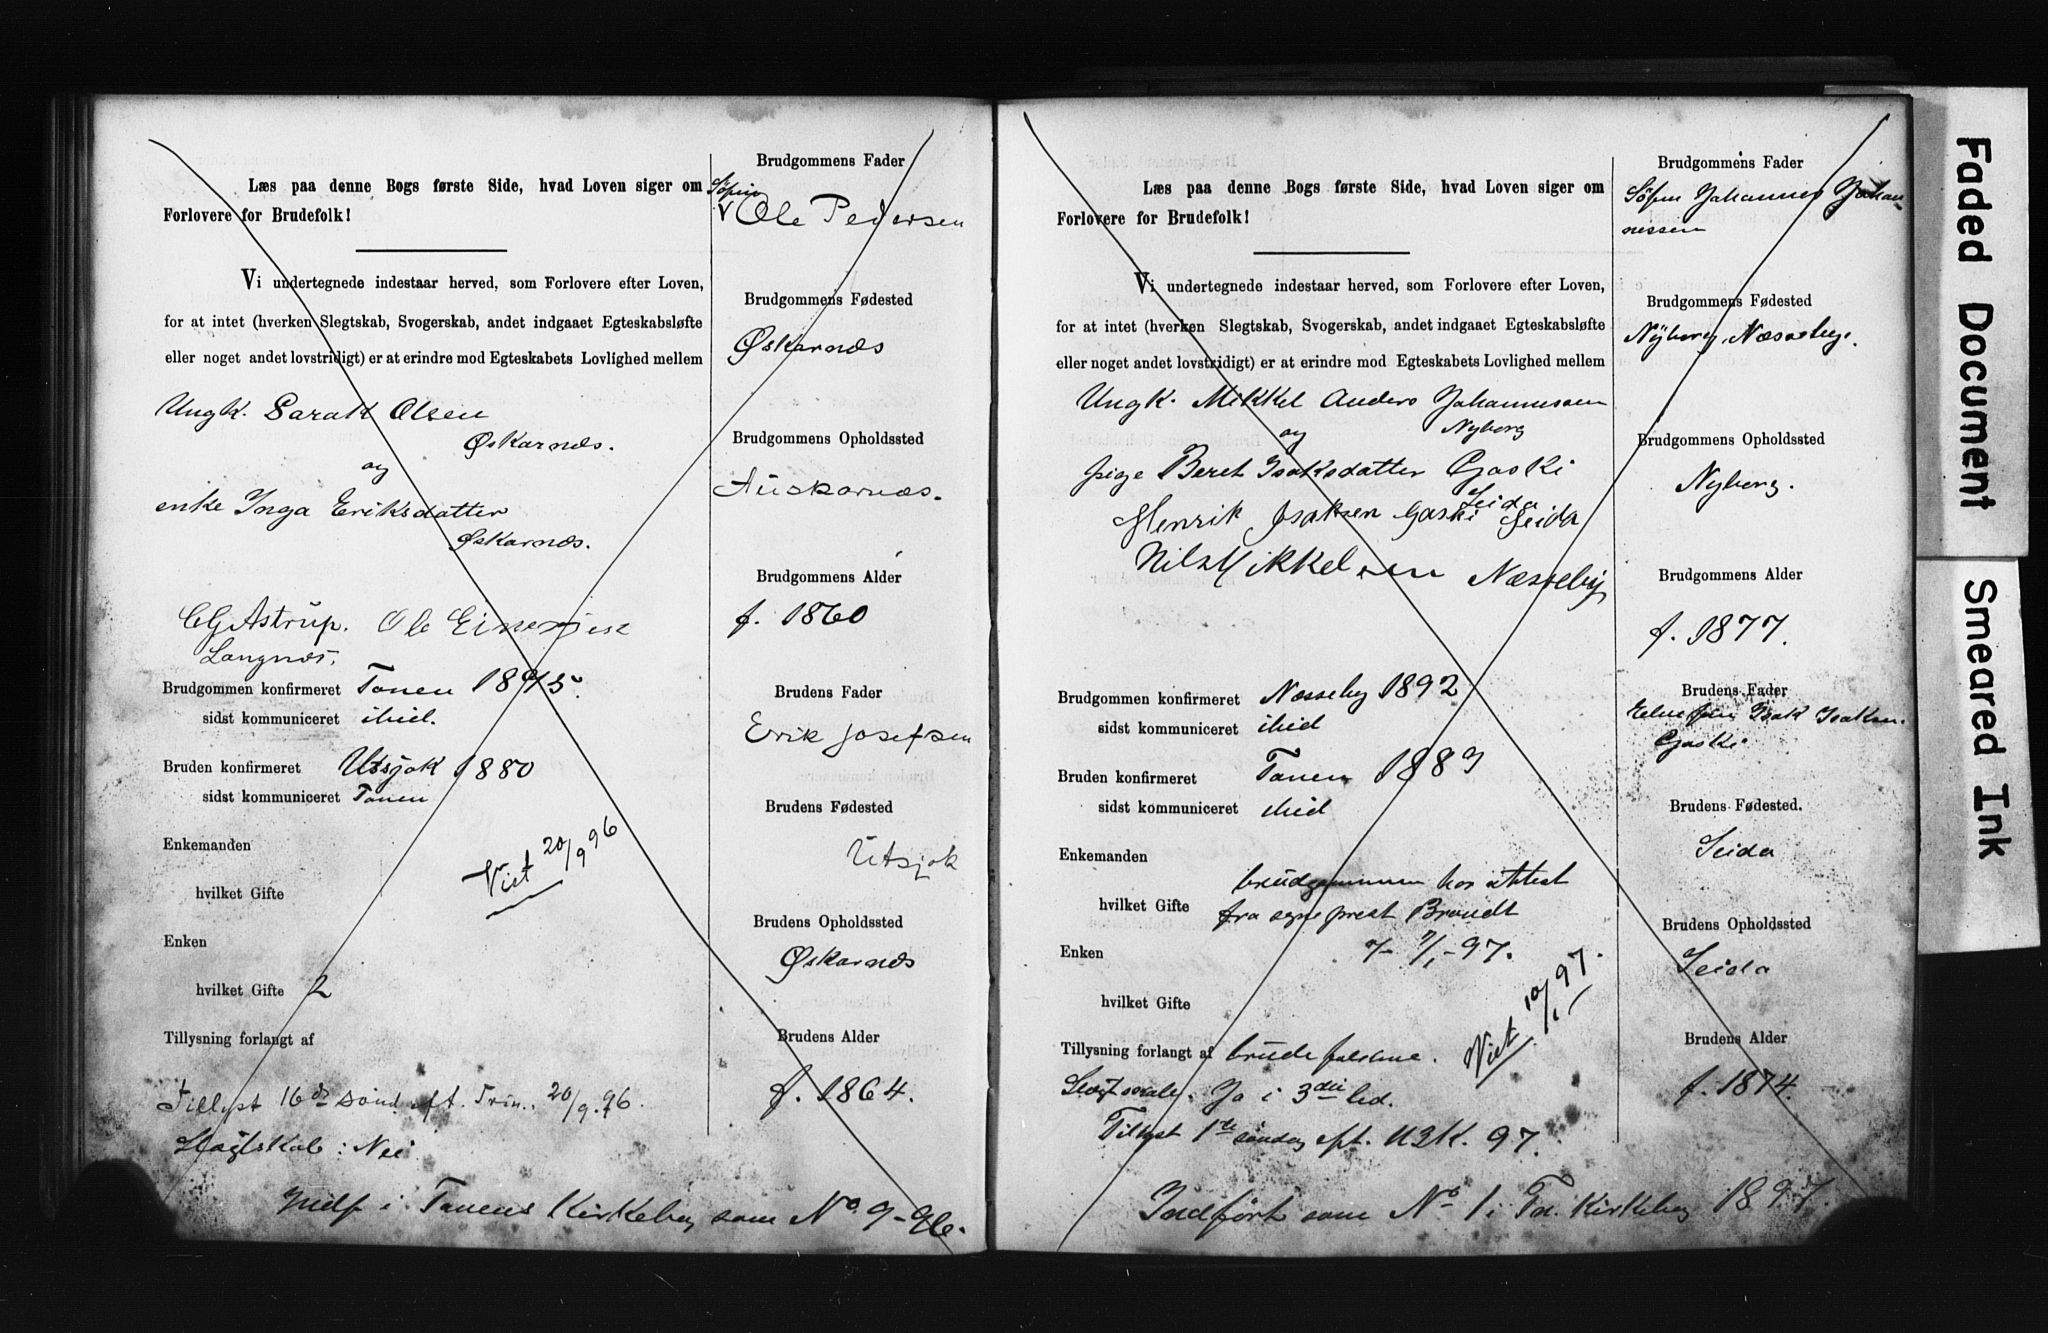 Læs paa denne Bogs første Side, hvad Loven siger om
Forlovere for Brudefolk!
Vi undertegnede indestaar herved, som Forlovere efter Loven,
for at intet (hverken Slegtskab, Svogerskab, andet indgaaet Egteskabsløfte
eller noget andet lovstridigt) er at erindre mod Egteskabets Lovlighed mellem
Ungk. Sarak Olsen
Øskarnæs.
og
enke Inga Eriksdatter
Øskarnæs.
CG Astrup. Ole
Langnæs.
Brudgommen konfirmeret Tanen
sidst kommuniceret ibid.
Bruden konfirmeret Utsjok 1880
sidst kommuniceret Tanen
Enkemanden
Viet 20/9 96
hvilket Gifte
Enken
hvilket Gifte 2
Tillysning forlangt af
Tillyst 16de sønd. eft. Trin. 20/9.96.
Slægtskab: Nei
Indf i Tanens Kirkebog som No. 9-96.
Brudgommens Fader
Ole Pedersen
Brudgommens Fødested
Øskarnæs
Brudgommens Opholdssted
Auskarnæs.
Brudgommens Alder
f. 1860
Brudens Fader
Erik Josefsen
Brudens Fødested
Utsjok
Brudens Opholdssted
Øskarnæs
Brudens Alder
f. 1864.
Læs paa denne Bogs første Side, hvad Loven siger om
Forlovere for Brudefolk!
Vi undertegnede indestaar herved, som Forlovere efter Loven,
for at intet (hverken Slegtskab, Svogerskab, andet indgaaet Egteskabsløfte
eller noget andet lovstridigt) er at erindre mod Egteskabets Lovlighed mellem
Ungk. Mikkel Anders Johannessen
og Nyborg
pige Beret Isaksdatter Gaski
Seida
Henrik Isaksen Gaski Seida
Nils Mikkelsen Næsseby
Brudgommen konfirmeret Næsseby 1892
sidst kommuniceret ibid
Bruden konfirmeret Tanen 1889
sidst kommuniceret ibid
Enkemanden
brudgommen har attest
hvilket Gifte fra sogneprest Brandt
Enken 7/1-97.
hvilket Gifte
Viet 10/1 97.
Tillysning forlangt af brudefolkene.
Ja i 3die led.
Tillyst 1te søndag eft. H3K. 97.
Indført som No 1 i Tn. Kirkebog 1897.
Brudgommens Fader
Johannes Johan-
nessen
Brudgommens Fødested
Nyborg, Næsseby.
Brudgommens Opholdssted
Nyborg.
Brudgommens Alder
f. 1877.
Brudens Fader
Isak Isaksen
Gaski
Brudens Fødested.
Seida
Brudens Opholdssted
Seida
Brudens Alder
f. 1874.
Faded Document
Smeared Ink